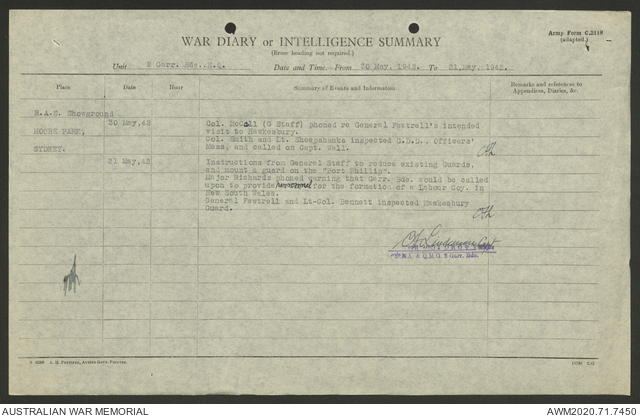 WAR DIARY or INTELLIGENCE SUMMARY
Army Form C.2118
(adapted.)
(Erase heading not required.)
Unit 2 Garr. Bde. H.Q. Date and Time. From 30 May. 1942. To 31.May. 1942.
Place Date Hour Summary of Events and Information Remarks and references to
Appendices, Diaries, &c.
R.A.S. Showground
MOORE PARK,
SYDNEY.
30 May,42 Col. McCall (G Staff) phoned re General Fewtrell's intended
visit to Hawkesbury.
Col. Smith and Lt. Sheepshanks inspected Officers'
Mess, and called on Capt. Wall.
31 May,42 Instructions from General Staff to reduce existing Guards,
and mount a guard on the "Port Phillip".
Major Richards phoned warning that Garr. Bde. would be called
upon to provide personnel for the formation of a Labour Coy. in
New South Wales.
General Fewtrell and Lt-Col. Bennett inspected Hawkesbury
Guard.
Capt
& Q.M.G. Garr. Bde.
AUSTRALIAN WAR MEMORIAL
AWM2020.71.7450